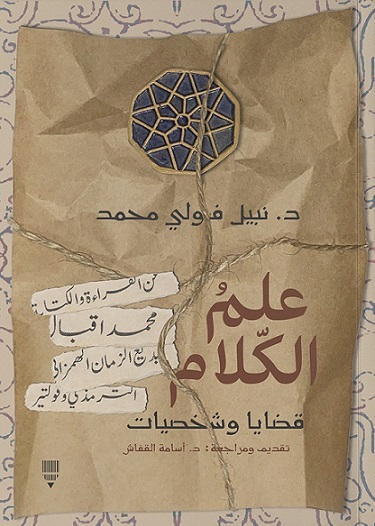 د. نبيل فولي محمد
عن القراءة والكتابة
محمد اقبال
بديع الزمان الهمزاني
الترمذي وفولتير
علمُ
الكلّام
قضايا وشخصيات
تقديم ومراجعة: د. أسامة القفاش